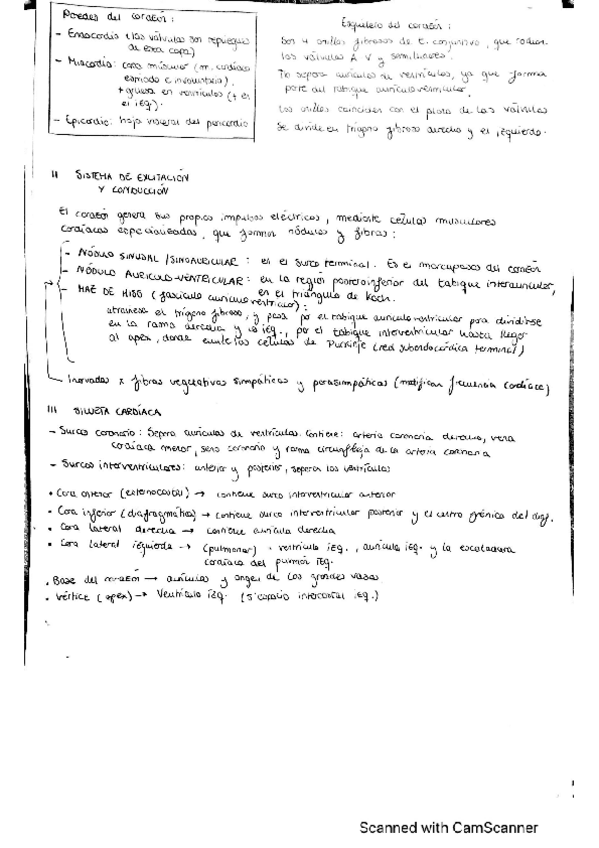 Paredes del corazón:
- Endocardio (las válvulas son repliegues
de esta capa)
- Miocardio: capa muscular (m. cardíaco
estriado e involuntario).
+ gruesa en ventrículos (+ en
el izq.).
- Epicardio: hoja visceral del pericardio
Esqueleto del corazón:
Son 4 anillos fibrosos de t. conjuntivo, que rodean
las válvulas A V y semilunares.
Tb separa aurículas de ventrículos, ya que forma
parte del tabique auriculoventricular.
Los anillos coinciden con el plano de las válvulas
Se divide en trígono fibroso derecho y el izquierdo.
II SISTEMA DE EXCITACIÓN
Y CONDUCCIÓN
El corazón genera sus propios impulsos eléctricos, mediante células musculares
cardíacas especializadas, que forman nódulos y fibras:
- NÓDULO SINUSAL / SINOAURICULAR: en el surco terminal. Es el marcapasos del corazón
- NÓDULO AURICULO-VENTRICULAR: en la región posteroinferior del tabique interauricular,
en el triángulo de Koch.
- HAZ DE HISS (fascículo auriculoventricular):
atraviesa el trígono fibroso, y pasa por el tabique auriculoventricular para dividirse
en la rama derecha y la izq., por el tabique interventricular hasta llegar
al apex, donde emite las células de Purkinje (red subendocárdica terminal)
Inervadas x fibras vegetativas simpáticas y parasimpáticas (modifican frecuencia cardíaca)
III SILUETA CARDÍACA
- Surco coronario: Separa aurículas de ventrículos. Contiene: arteria coronaria derecha, vena
cardíaca menor, seno coronario y rama circunfleja de la arteria coronaria
- Surcos interventriculares: anterior y posterior, separan los ventrículos
• Cara anterior (esternocostal) → contiene surco interventricular anterior
• Cara inferior (diafragmática) → contiene surco interventricular posterior y el centro frénico del diaf.
• Cara lateral derecha → contiene aurícula derecha
• Cara lateral izquierda → (pulmonar). ventrículo izq., aurícula izq. y la escotadura
cardíaca del pulmón izq.
• Base del corazón → aurículas y origen de los grandes vasos
• Vértice (apex) → Ventrículo izq. (5º espacio intercostal izq.)
Scanned with CamScanner